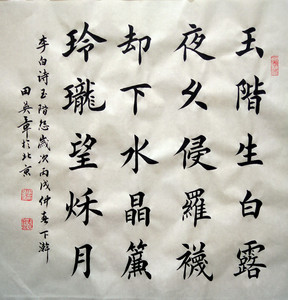 玉階生白露
夜久侵羅襪
却下水晶簾
玲瓏望秋月
李白诗玉階怨歲次丙戌仲春下澣
田英章於北京